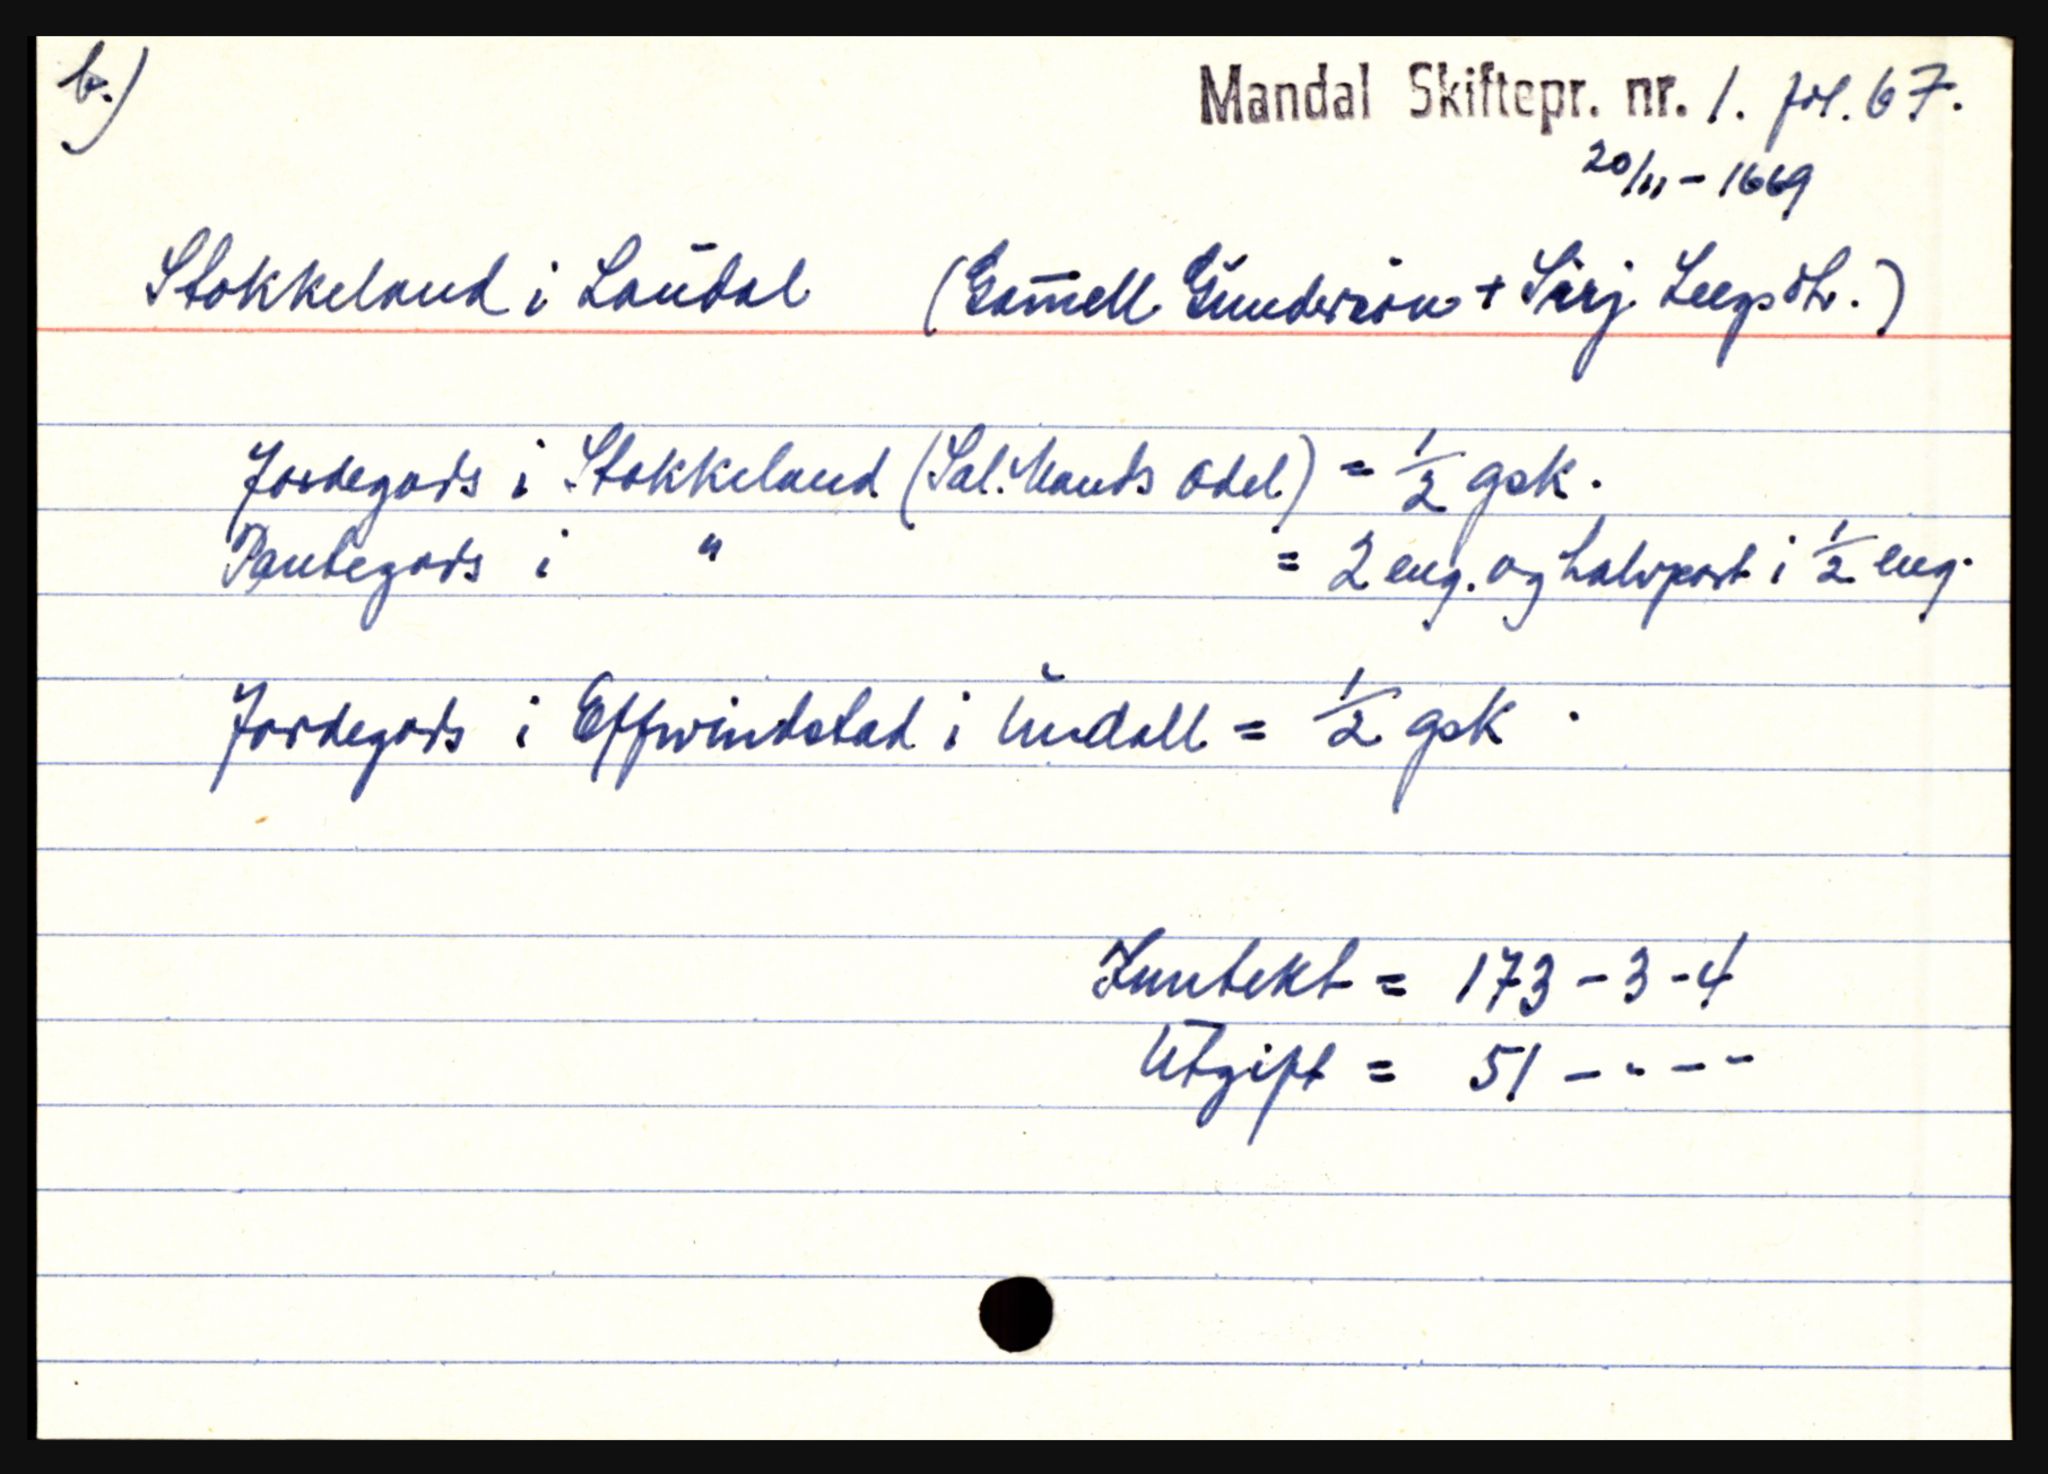 b.)
Mandal Skiftepr. nr. 1. fol. 67.
20/11 - 1669
Stokkeland i Laudal (Gamell Gunderson + Sirj Leegsdtr.)
Jordegods i Stokkeland (Sal. Mands odel) = 1/2 gsk.
Pantegods i " = 2 eng. og halvpart i 1/2 eng.
Jordegods i Effwindstad i Undall = 1/2 gsk.
Inntekt = 173 - 3 - 4
Utgift = 51 - - - -